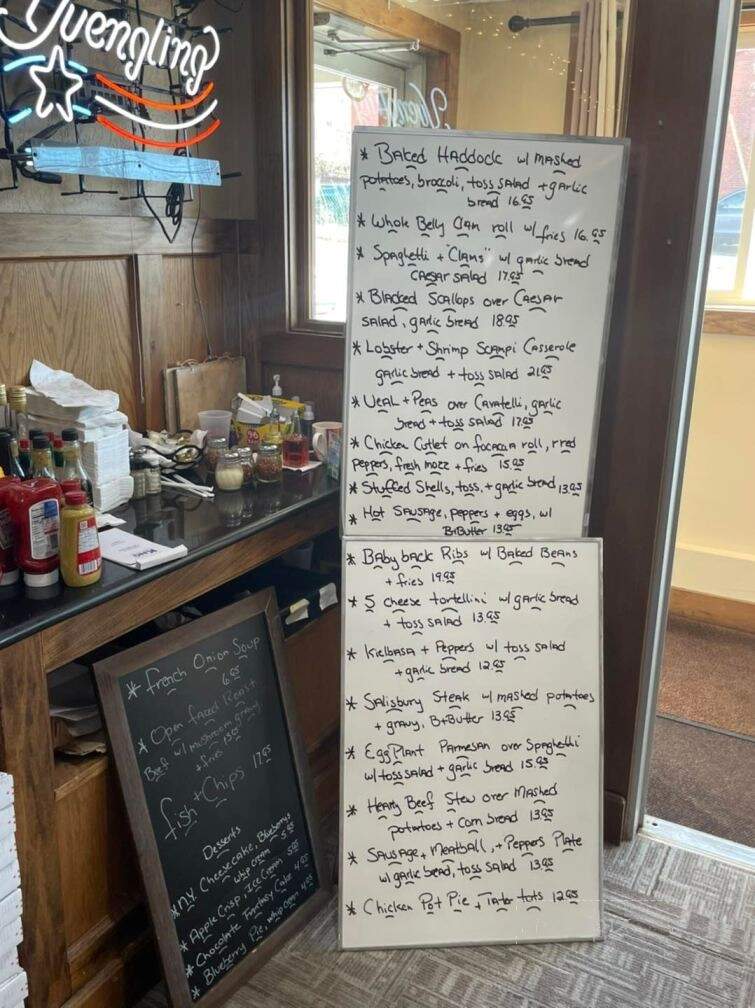 Yuengling
* Baked Haddock w/ mashed
potatoes, broccoli, toss salad + garlic
bread 16.95
* Whole Belly Clam roll w/ fries 16.95
* Spaghetti + "Clams" w/ garlic bread
Caesar salad 17.95
* Blacked Scallops over Caesar
salad, garlic bread 18.95
* Lobster + Shrimp Scampi Casserole
garlic bread + toss salad 21.95
* Veal + Peas over Cavatelli, garlic
bread + toss salad 17.95
* Chicken Cutlet on focaccia roll, r red
peppers, fresh mozz + fries 15.95
* Stuffed Shells, toss, + garlic bread 13.95
* Hot Sausage, peppers + eggs, w/
B+Butter 13.95
* Baby back Ribs w/ Baked Beans
+ fries 19.95
* 5 cheese tortellini w/ garlic bread
+ toss salad 13.95
* Kielbasa + Peppers w/ toss salad
+ garlic bread 12.95
* Salisbury Steak w/ mashed potatoes
+ gravy, B+Butter 13.95
* EggPlant Parmesan over Spaghetti
w/ toss salad + garlic bread 15.95
* Hearty Beef Stew over Mashed
potatoes + Corn bread 13.95
* Sausage, Meatball, + Peppers Plate
w/ garlic bread, toss salad 13.95
* Chicken Pot Pie + Tater tots 12.95
* French Onion Soup
6.95
* Open faced Roast
Beef w/ mushroom gravy
+ fries 13.95
fish + Chips 17.95
Desserts
* N.Y Cheesecake, Blueberrys
whip cream 5.95
* Apple Crisp, Ice Cream 5.95
* Chocolate Fantasy Cake 4.95
* Blueberry Pie, whip cream 4.95